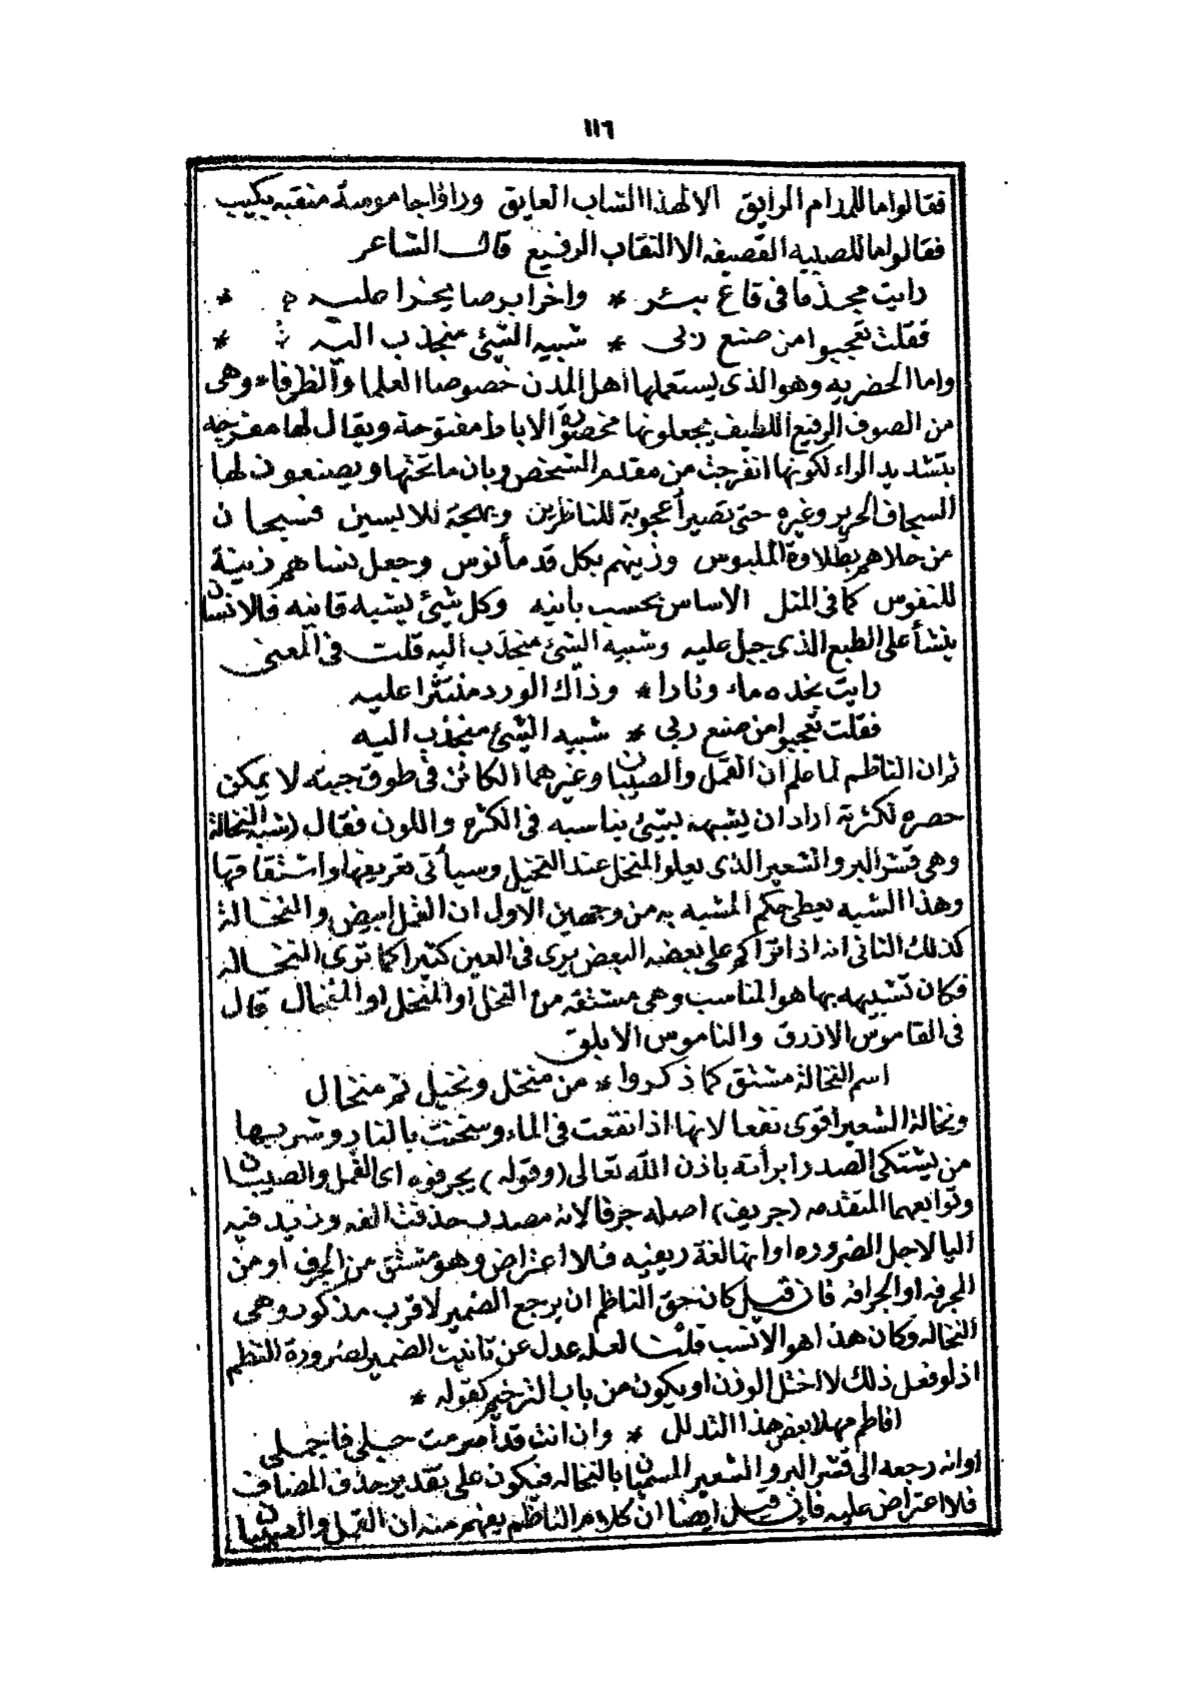 ١١٦
فقالوا ما للرزام الرايق الا لهذا الشاب العايق وراوا جاموسة منقبه بكيب
فقالوا ما للصبيه القصيفه الا النقاب الرفيع قال الشاعر
رايت مجذما فى قاع بئر * واخر ابرصا يخرا عليه *
فقلت تعجبوا من صنع ربى * شبيه الشئ منجذب اليه *
واما الحضريه وهو الذى يستعملها اهل المدن خصوصا العلما والظرفاء وهى
من الصوف الرفيع اللطيف يجعلونها مخصرة الاباط مفتوحة ويقال لها مفرجيه
بتشديد الراء لكونها انفرجت من مقدم الشخص وبان ما تحتها ويصنعون لها
السجاف الحرير وغيره حتى تصير أعجوبة للناظرين وبهجة للابسين فسبحان
من حلاهم بطلاوة الملبوس وزينهم بكل قد مأنوس وجعل نساهم زينة
للنفوس كما فى المثل الاساس بحسب بانيه وكل شئ يشبه قانيه فالانسان
ينشأ على الطبع الذى جبل عليه وشبيه الشئ منجذب اليه قلت فى المعنى
رايت بخده ماء ونارا * وذاك الورد منتثرا عليه
فقلت تعجبوا من صنع ربى * شبيه الشئ منجذب اليه
ثم ان الناظم لما علم ان القمل والصيبان وغيرهما الكائن فى طوق جبته لا يمكن
حصره لكثرته اراد ان يشبهه بشئ يناسبه فى الكثره واللون فقال (شبه النخالة
وهى قشر البر والشعير الذى يعلو المنخل عند التخيل وسيأتى تعريفها واشتقاقها
وهذا الشبه يعطى حكم المشبه به من وجهين الاول ان القمل ابيض والنخالة
كذلك الثانى انه اذا تراكم على بعضه البعض يرى فى العين كثيرا كما ترى النخاله
فكان تشبيهه بها هو المناسب وهى مشتقه من النخل أو المنخل او المنخال قال
فى القاموس الازرق والناموس الابلق
اسم النخالة مشتق كما ذكروا * من منخل ونخيل ثم منخال
ونخالة الشعير اقوى نفعا لانها اذا نقعت فى الماء وسخنت بالنار وشربها
من يشتكى الصدر ابرأته باذن الله تعالى (وقوله) يجرفوه اى القمل والصيبان
وتوابعهما المتقدمه (جريف) اصله جرفا لانه مصدر حذفت الفه وزيد فيه
اليا لاجل الضروره او انها لغة ريفيه فلا اعتراض وهو مشتق من الجرف او من
الجرفه او الجرافه فان قيل كان حق الناظم ان يرجع الضمير لاقرب مذكور وهى
النخاله وكان هذا هو الانسب قلت لعله عدل عن تانيث الضمير لضرورة النظم
اذ لو فعل ذلك لا اختل الوزن او يكون من باب الترخيم كقوله *
افاطم مهلا بعض هذا التدلل * وان انت قد أصرمت حبلى فاجملى
او انه رجعه الى قشر البر والشعير المسميان بالنخاله فيكون على تقدير حذف المضاف
فلا اعتراض عليه فان قيل ايضا ان كلام الناظم يفهم منه ان القمل والصيبان